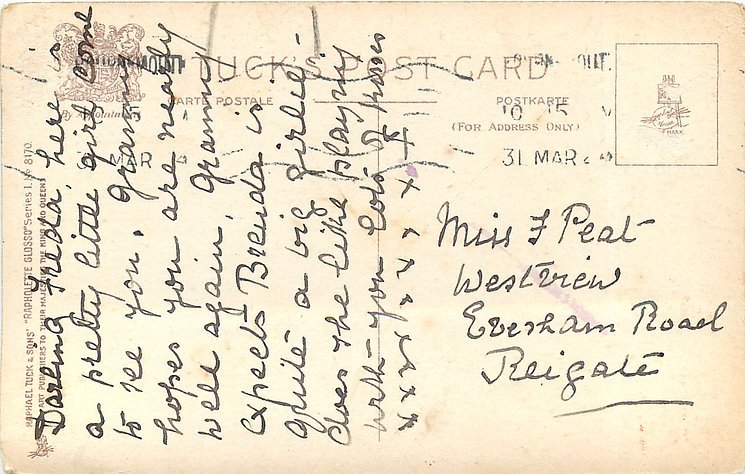 Darling Freda, here is
a pretty little girl come
to see you. Granny
hopes you are nearly
well again. Granny
expects Brenda is
quite a big girlie -
does she like playing
with you Lots of kisses
x x x x x x x x x
TUCK'S POST CARD
CARTE POSTALE
POSTKARTE
(FOR ADDRESS ONLY)
By Appointment
10 15
31 MAR
MAR
TRADE MARK
Miss F Peat
Westview
Evesham Road
Reigate
RAPHAEL TUCK & SONS' "RAPHOLETTE GLOSSO" Series I. No 8170.
ART PUBLISHERS TO THEIR MAJESTIES THE KING AND QUEEN